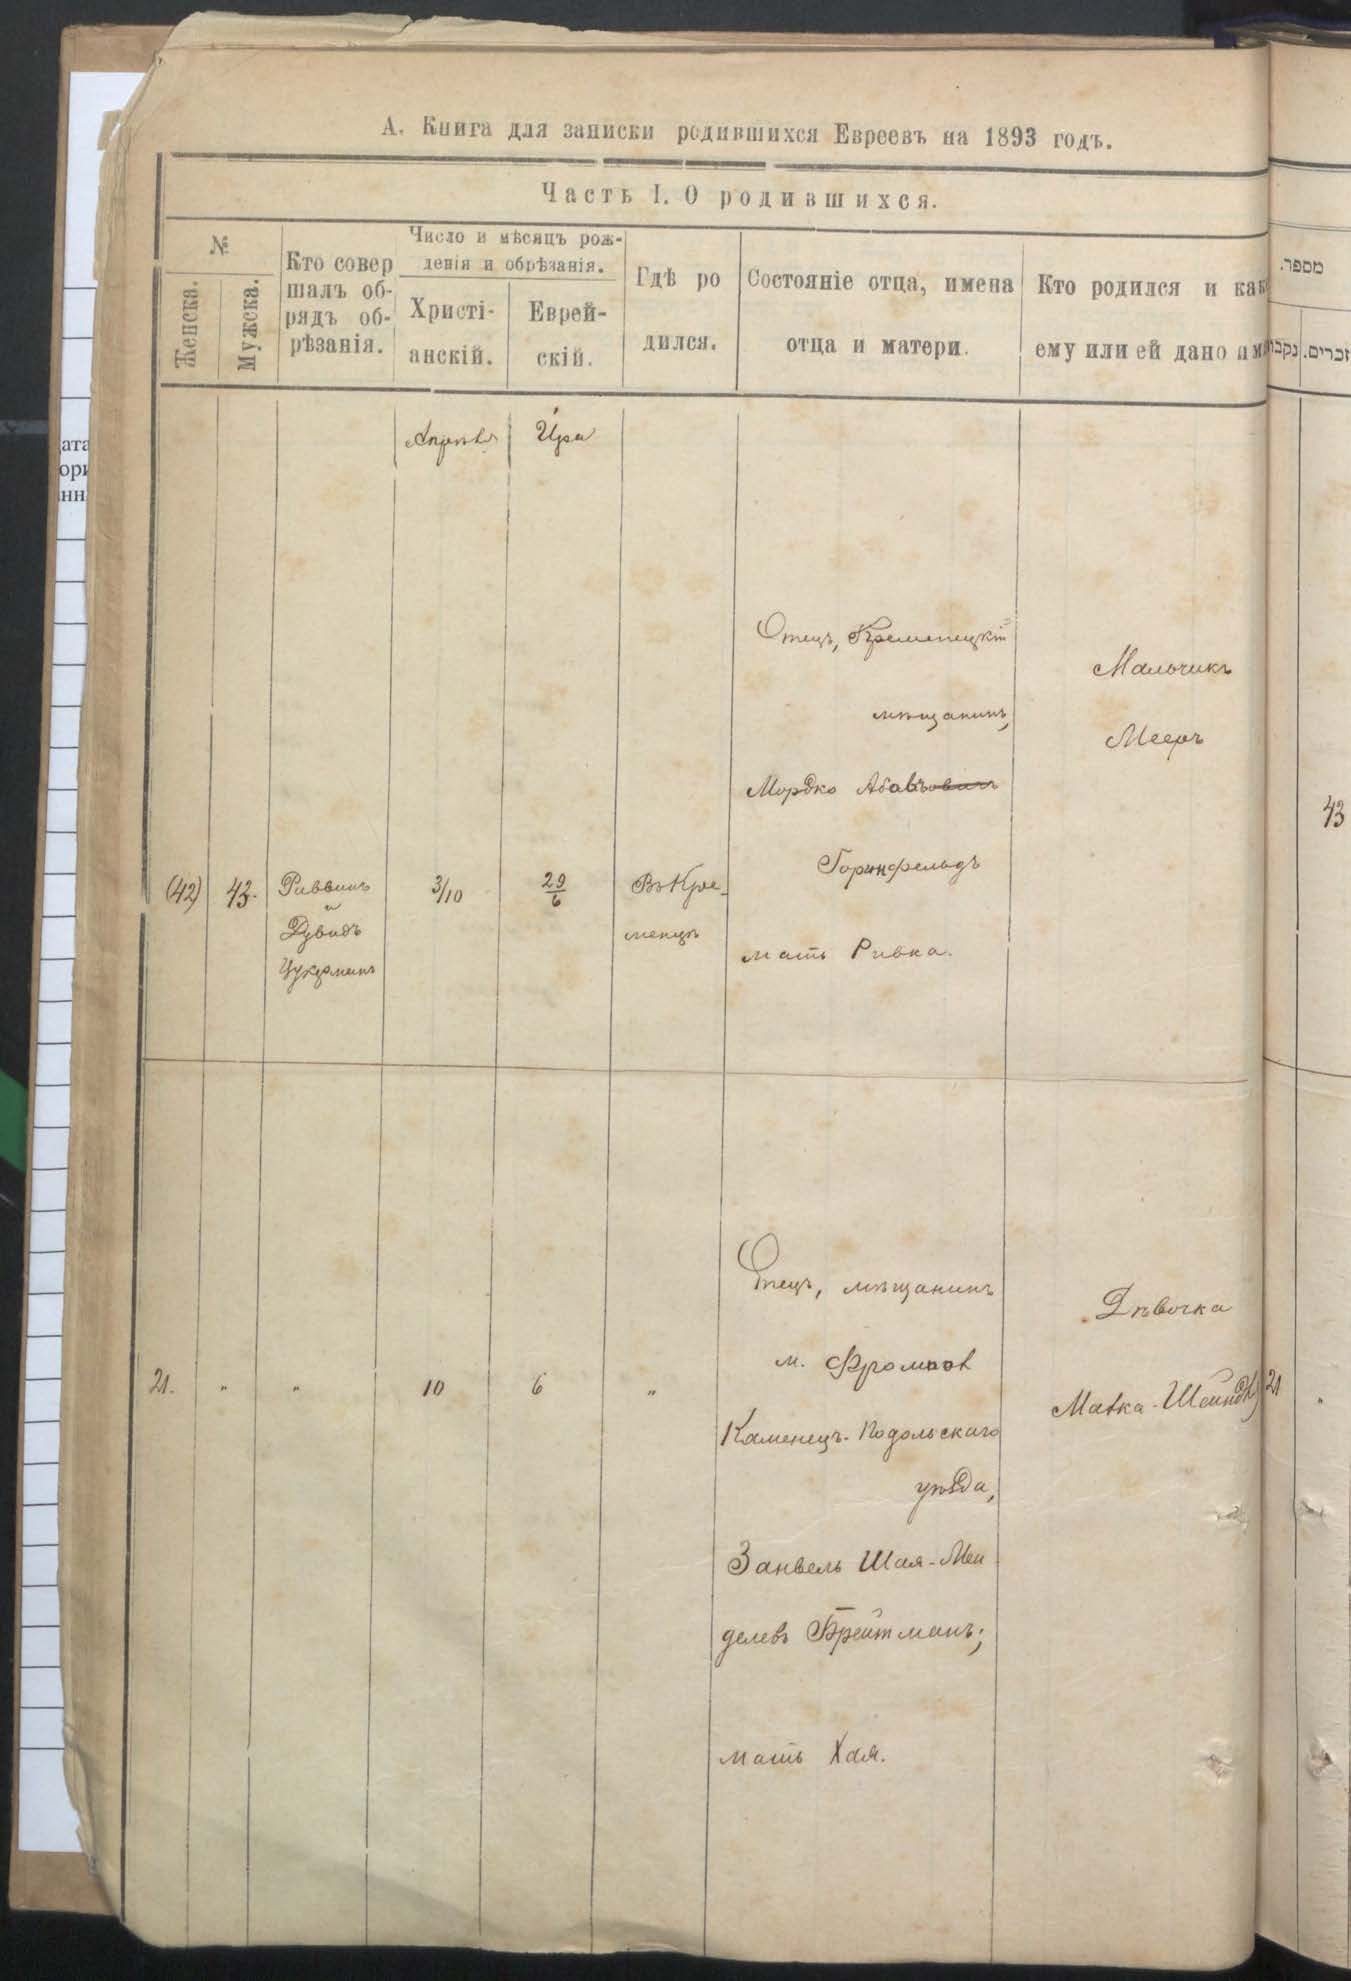 А. Книга для записки родившихся Евреевъ на 1893 годъ.
Часть I. О родившихся.
№
Женска.
Мужска.
Кто совер
шалъ об-
рядъ об-
рѣзанія.
Число и мѣсяцъ рож-
денія и обрѣзанія.
Христі-
анскій.
Еврей-
скій.
Гдѣ ро
дился.
Состояніе отца, имена
отца и матери.
Кто родился и как
ему или ей дано им
מספר.
זכרים.
נקבו
Апрель
Іира
(42)
43.
Раввинъ
и
Дувидъ
Цукерманъ
3/10
29/6
Въ Кре-
менцѣ
Отецъ, Кременецкій
мѣщанинъ,
Мордко
Горинфельдъ
мать Ривка.
Мальчикъ
Мееръ
43
21.
"
"
10
6
"
Отецъ, мѣщанинъ
м.
Каменецъ-Подольскаго
уѣзда,
Занвель Шая-Мен
делевъ Брейтманъ;
мать Хая.
Дѣвочка
Малка-Шейндля
21
"
ата
ори
нн